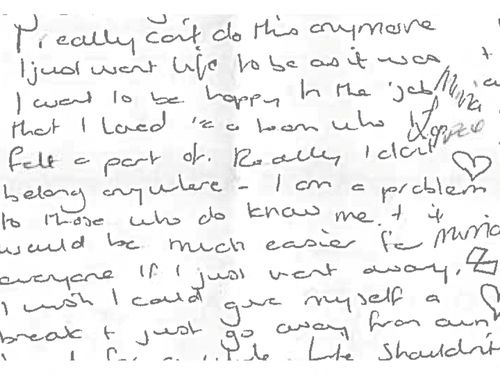 I really can't do this anymore
I just want life to be as it was +
I want to be happy in the job
that I loved is a born who
felt a part of. Really I don't
belong anywhere - I am a problem
to those who do know me. + it
would be much easier for
everyone if I just went away.
I wish I could give myself a
break + just go away from
Life shouldn't